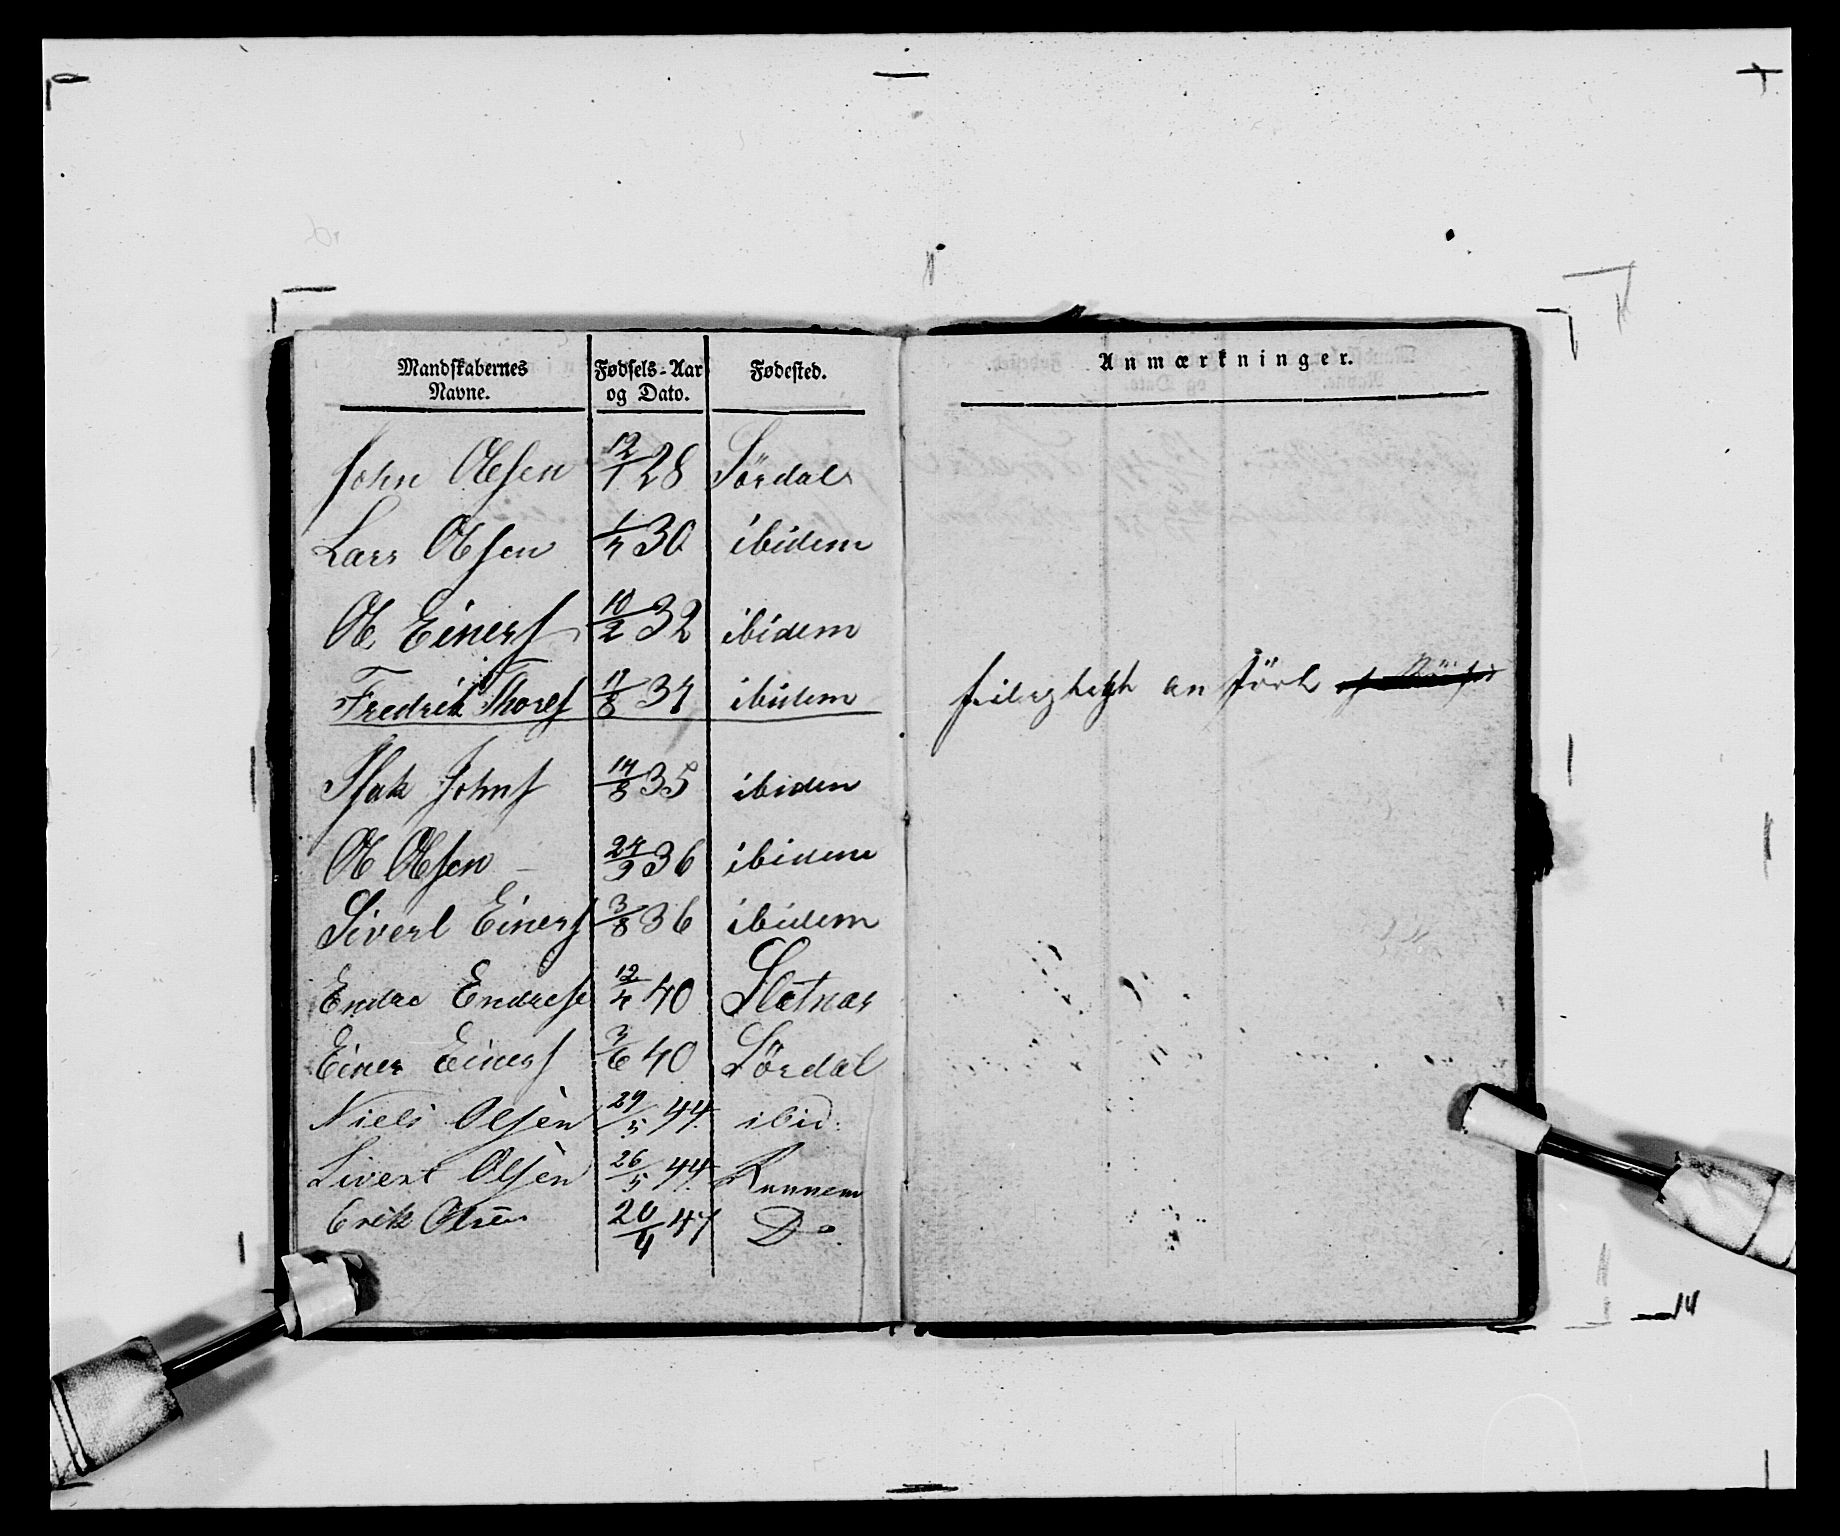 Mandskabernes Navne. Fødsels-Aar og Dato. Fødested. Anmærkninger.
John Olsen 12/1 28 Sördal
Lars Olsen 1/7 30 ibidem
Ol Einers 10/2 32 ibidem
Fredrik Thores 11/8 34 ibidem
Isak Johns 14/8 35 ibidem
Ol Olsen 27/9 36 ibidem
Sivert Einers 3/8 36 ibidem
Endre Endres 12/4 40 Sletnes
Einer Einers 3/6 40 Sördal
Niels Olsèn 29/5 44. ibid.
Sivert Olsèn 26/5 44. Runnem
Erik Olsen 20/4 47 Do
14